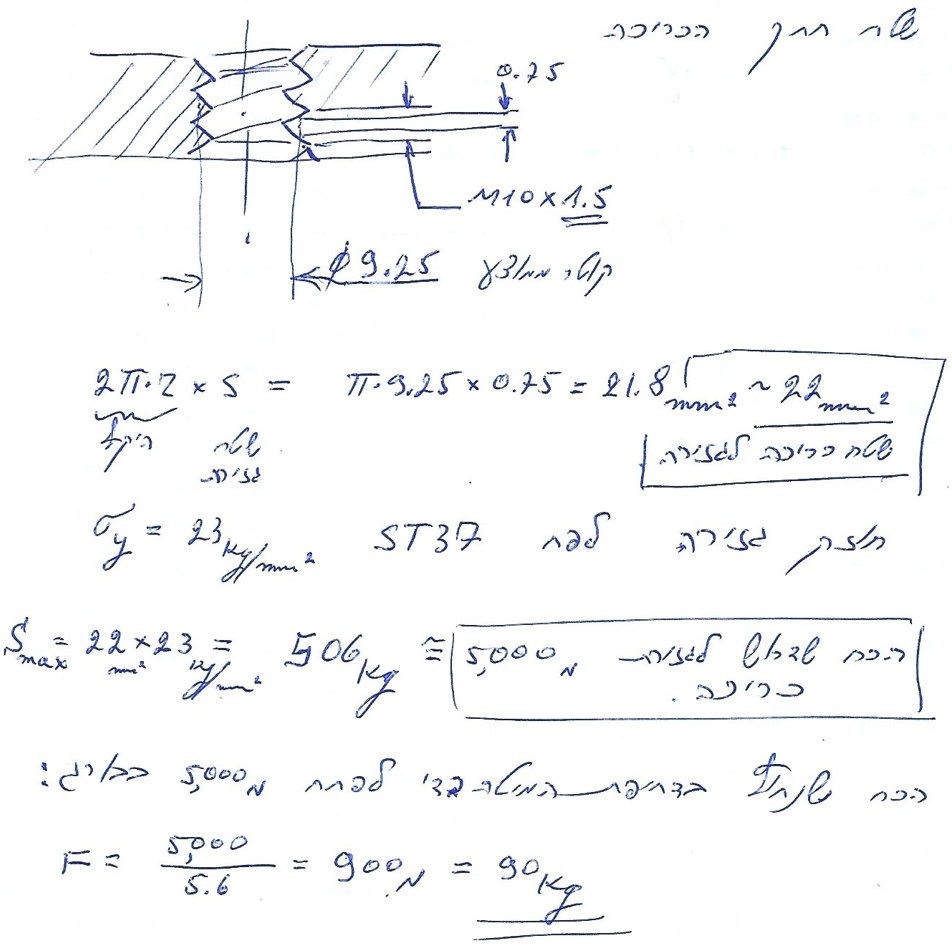 שטח חתך הכריכה
0.75
M10×1.5
⌀9.25 קוטר ממוצע
2π·r × S = π·9.25 × 0.75 = 21.8 mm² ~ 22 mm²
היקף שטח גזירה
שטח כריכה לגזירה
σy = 23 kg/mm² ST37 חוזק גזירה לפח
Smax = 22 mm² × 23 kg/mm² = 506 kg ≅ 5,000 נ הכח שדרוש לגזירת כריכה.
הכח שנחוץ בדחיפת המיטה כדי לפתח 5,000 נ בבורג:
F = 5,000 / 5.6 = 900 נ = 90 kg